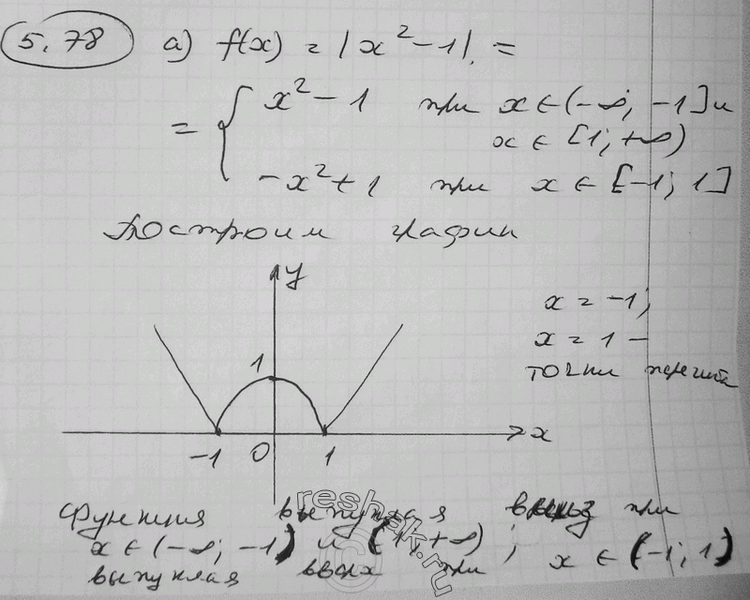 5.78 а) f(x) = |x² - 1| =
= { x² - 1 при x ∈ (-∞; -1] и
x ∈ [1; +∞)
-x² + 1 при x ∈ [-1; 1]
Построим график
y
x = -1;
x = 1 -
точки перегиба
1
-1 0 1 x
Функция выпуклая вниз при
x ∈ (-∞; -1) и (1; +∞);
выпуклая вверх при x ∈ (-1; 1)
reshak.ru